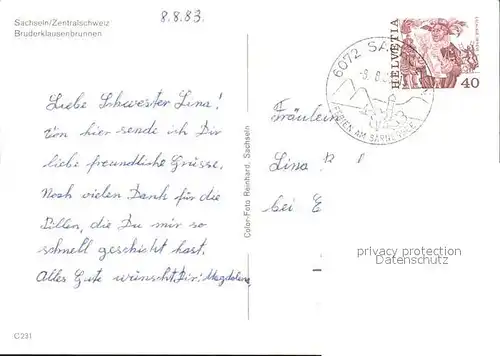 8.8.83.
Sachseln/Zentralschweiz
Bruderklausenbrunnen
6072 SA
HELVETIA
40
FERIEN AM SARNERSEE
Liebe Schwester Lina!
Von hier sende ich Dir
liebe freundliche Grüsse.
Noch vielen Dank für die
Pillen, die Du mir so
schnell geschickt hast.
Alles Gute wünscht Dir: Magdalena
Color-Foto Reinhard, Sachseln
Fräulein
Lina
bei E
privacy protection
Datenschutz
C 231